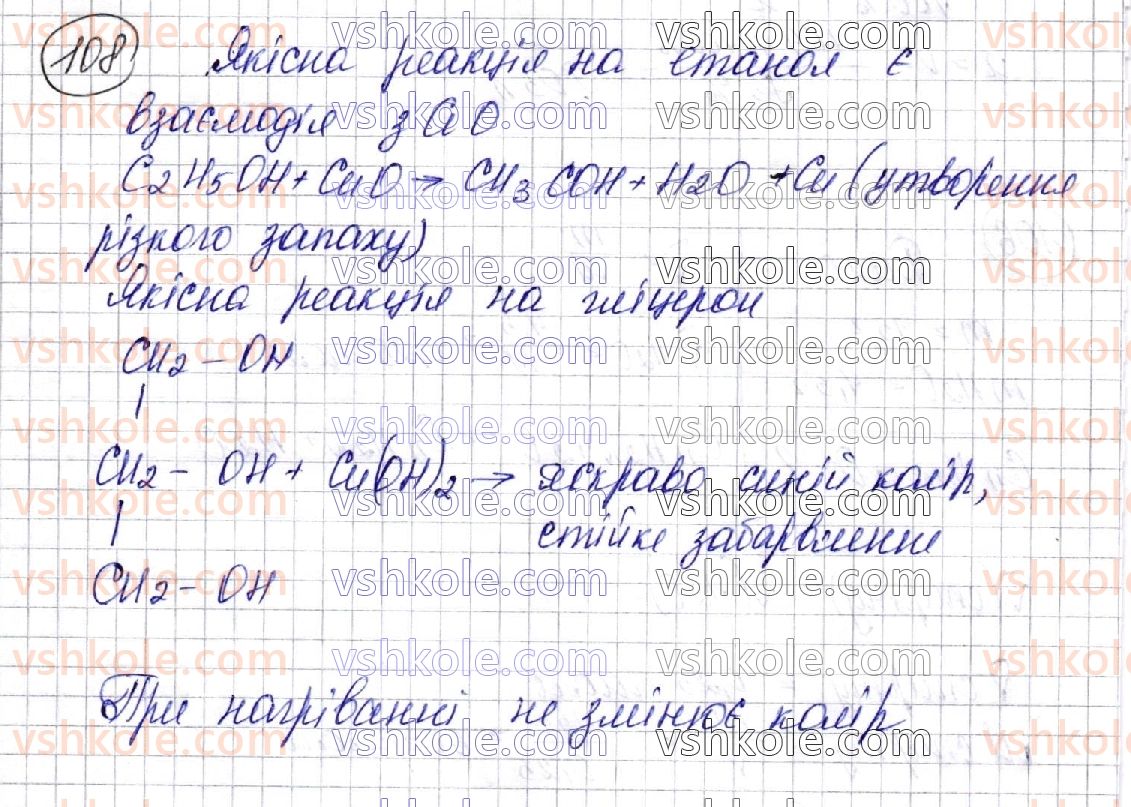 108 Якісна реакція на етанол є
взаємодія з CuO
C2H5OH + CuO → CH3COH + H2O + Cu (утворення
різкого запаху)
Якісна реакція на гліцерол
CH2 - OH
|
CH2 - OH + Cu(OH)2 → яскраво синій колір,
| стійке забарвлення
CH2 - OH
При нагріванні не змінює колір
vshkole.com